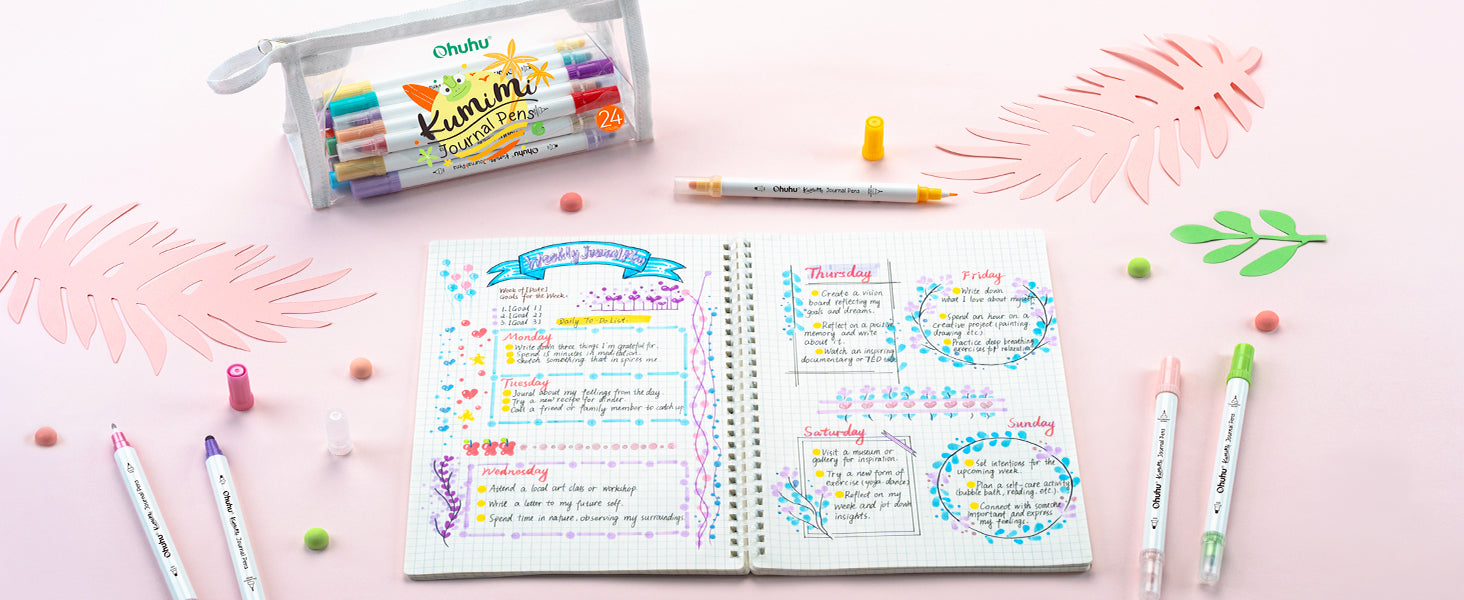 Ohuhu®
Kumimi
Journal Pens
24
Ohuhu® Kumimi Journal Pens
Weekly Journal
Week of [Date]
Goals for the Week:
1. [Goal 1]
2. [Goal 2]
3. [Goal 3]
Daily To-Do List:
Monday
Write down three things I'm grateful for.
Spend 15 minutes in meditation.
Sketch something that inspires me.
Tuesday
Joural about my feelings from the day.
Try a new recipe for dinner
Call a friend or family member to catch up.
Wednesday
Attend a local art class or workshop.
Write a letter to my future self.
Spend time in nature, observing my surroundings.
Thursday
Create a vision
board reflecting my
goals and dreams.
Reflect on a positive
memory and write
about it.
Watch an inspiring
documentary or TED talk
Friday
Write down
what I love about myself
Spend an hour on a
creative project (painting,
drawing, etc).
Practice deep breathing
exercises for relaxation
Saturday
Visit a museum or
gallery for inspiration.
Try a new form of
exercise (yoga, dance)
Reflect on my
week and jot down
insights.
Sunday
Set intentions for the
upcoming week.
Plan a self-care activity
(bubble bath, reading, etc).
Connect with someone
important and express
my feelings.
Ohuhu® Kumimi Journal Pens
Ohuhu® Kumimi Journal Pens
Ohuhu® Kumimi Journal Pens
Ohuhu® Kumimi Journal Pens